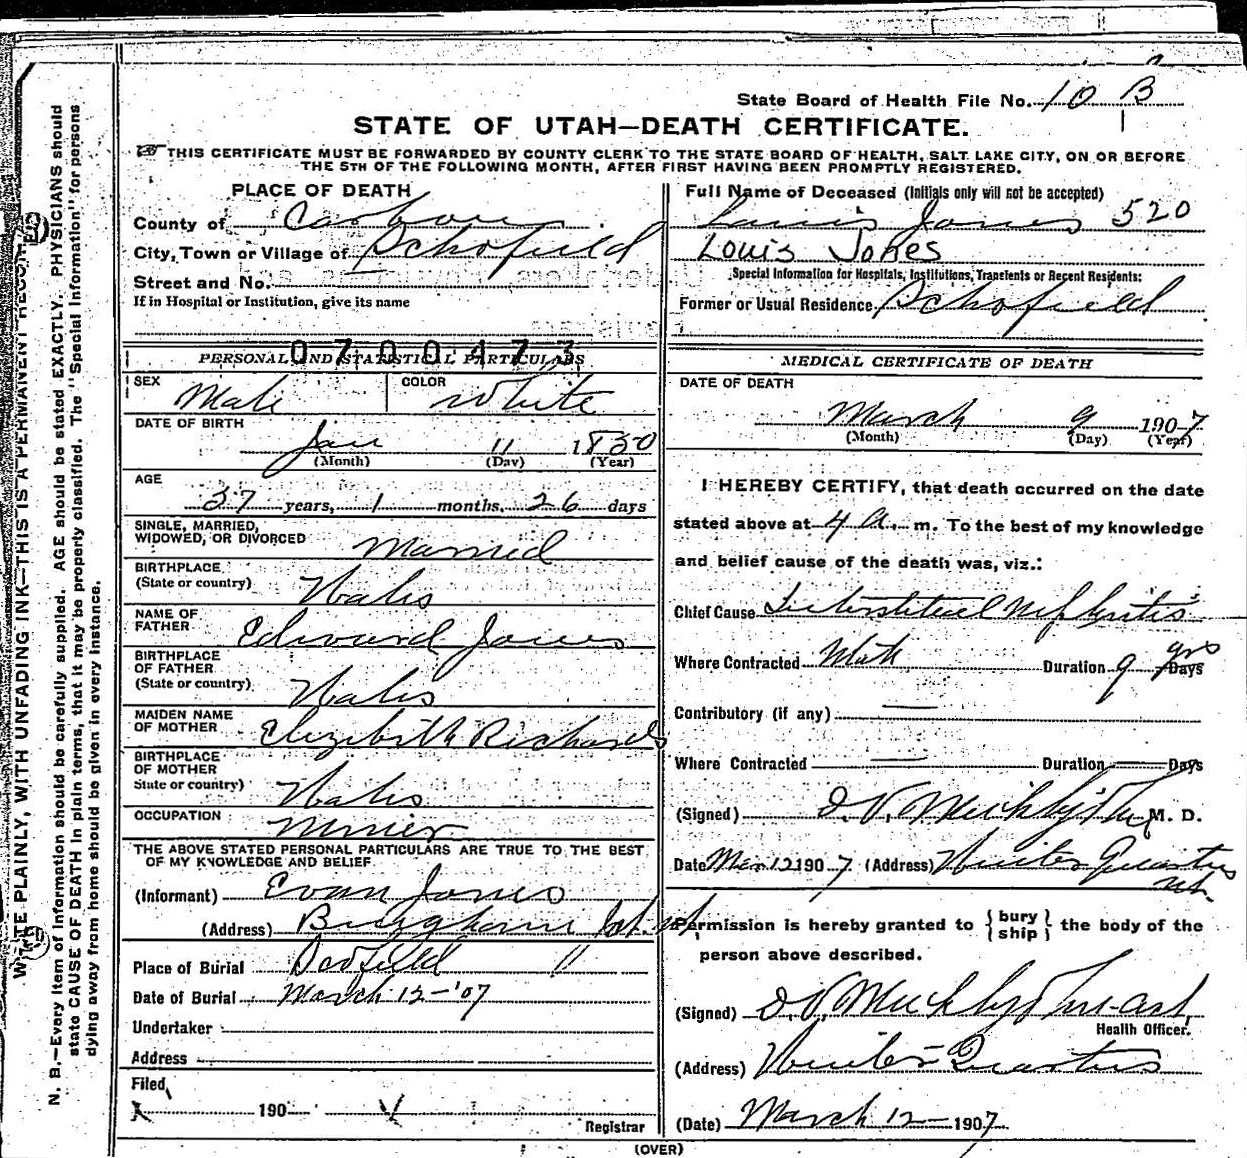 State Board of Health File No. 10 B
STATE OF UTAH—DEATH CERTIFICATE.
THIS CERTIFICATE MUST BE FORWARDED BY COUNTY CLERK TO THE STATE BOARD OF HEALTH, SALT LAKE CITY, ON OR BEFORE
THE 5TH OF THE FOLLOWING MONTH, AFTER FIRST HAVING BEEN PROMPTLY REGISTERED.
PLACE OF DEATH
County of Carbon
City, Town or Village of Schofield
Street and No.
If in Hospital or Institution, give its name
0700473
PERSONAL AND STATISTICAL PARTICULARS
SEX Male COLOR White
DATE OF BIRTH
Jan 11 1850
(Month) (Day) (Year)
AGE
57 years, 1 months, 26 days
SINGLE, MARRIED,
WIDOWED, OR DIVORCED Married
BIRTHPLACE
(State or country) Wales
NAME OF
FATHER Edward Jones
BIRTHPLACE
OF FATHER
(State or country) Wales
MAIDEN NAME
OF MOTHER Elizibith Richards
BIRTHPLACE
OF MOTHER
State or country) Wales
OCCUPATION Minier
THE ABOVE STATED PERSONAL PARTICULARS ARE TRUE TO THE BEST
OF MY KNOWLEDGE AND BELIEF.
(Informant) Evan Jones
(Address)
Place of Burial "
Date of Burial March 12-'07
Undertaker
Address
Filed,
190
Registrar
Full Name of Deceased (Initials only will not be accepted)
Louis Jones 520
Louis Jones
Special Information for Hospitals, Institutions, Transients or Recent Residents:
Former or Usual Residence Schofield
MEDICAL CERTIFICATE OF DEATH
DATE OF DEATH
March 9 1907
(Month) (Day) (Year)
I HEREBY CERTIFY, that death occurred on the date
stated above at 4 a. m. To the best of my knowledge
and belief cause of the death was, viz.:
Chief Cause Interstitial Nephritis
Where Contracted Utah Duration 9 yrs Days
Contributory (if any) —
Where Contracted — Duration — Days
(Signed) M. D.
Date Mar 12 1907 (Address) Winter Quarters
Ut.
Permission is hereby granted to { bury ship } the body of the
person above described.
(Signed)
Health Officer.
(Address) Winter Quarters
(Date) March 12— 1907.
(OVER)
WRITE PLAINLY, WITH UNFADING INK—THIS IS A PERMANENT RECORD.
N. B.—Every item of information should be carefully supplied. AGE should be stated EXACTLY. PHYSICIANS should
state CAUSE OF DEATH in plain terms, that it may be properly classified. The "Special Information" for persons
dying away from home should be given in every instance.